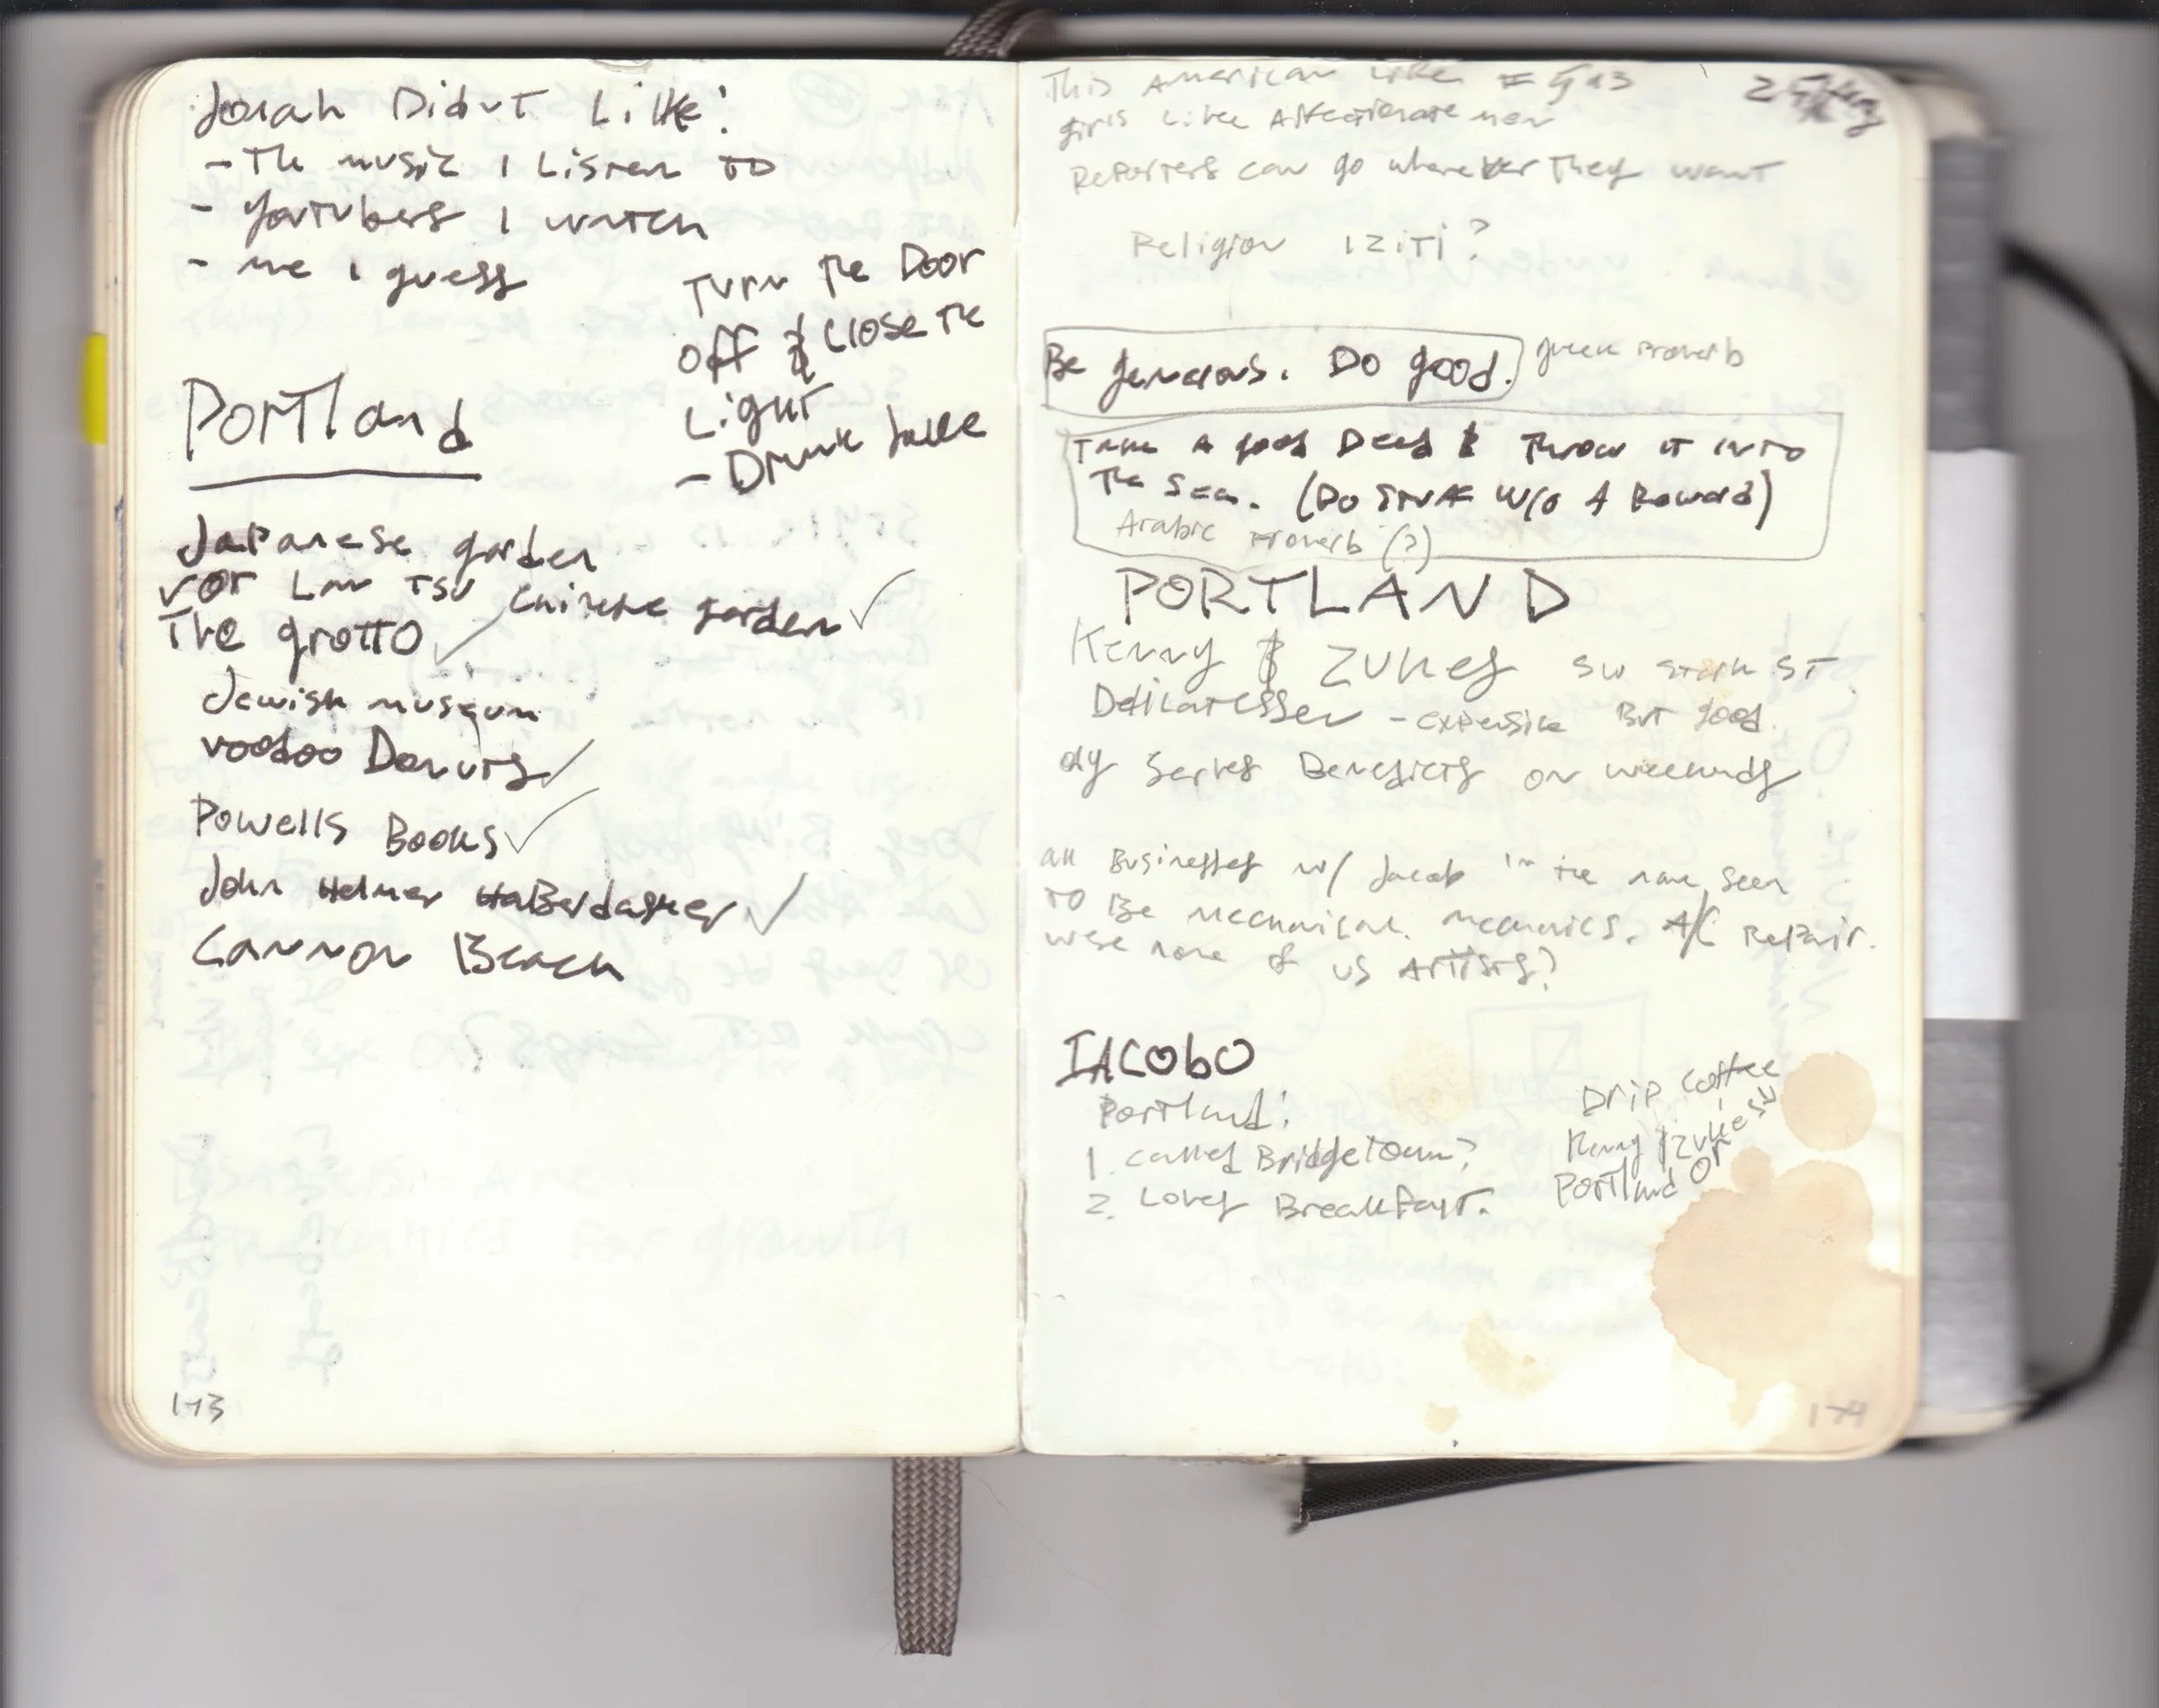 Jorah Didnt Like:
- The music I Listen to
- Youtubers I watch
- me I guess
Turn the Door
off & close the
Light
- Drunk Luke
Portland
Japanese garden
Lan Tsu Chinese garden ✓
The grotto ✓
Jewish museum
Voodoo Donuts ✓
Powells Books ✓
John Helmer Haberdasher ✓
Cannon Beach
173
This American Life #513
girls like Affectionate men
Reporters can go wherever They want
Religion
Be generous. Do good.
greek Proverb
Take A good Deed & Throw it into
The Sea. (Do Stuff w/o A Reward)
Arabic Proverb (?)
PORTLAND
Kenny & Zukes SW Stark ST
Delicatessen - expensive But good.
only Serves Benedicts on weekends
all Businesses w/ Jacob in the name seem
TO Be mechanical. mechanics. A/C Repair.
were none of us Artists?
IACOBO
Portland:
1. called Bridgetown?
2. Loves Breakfast.
Drip coffee
Kenny & Zukes
Portland OR
174